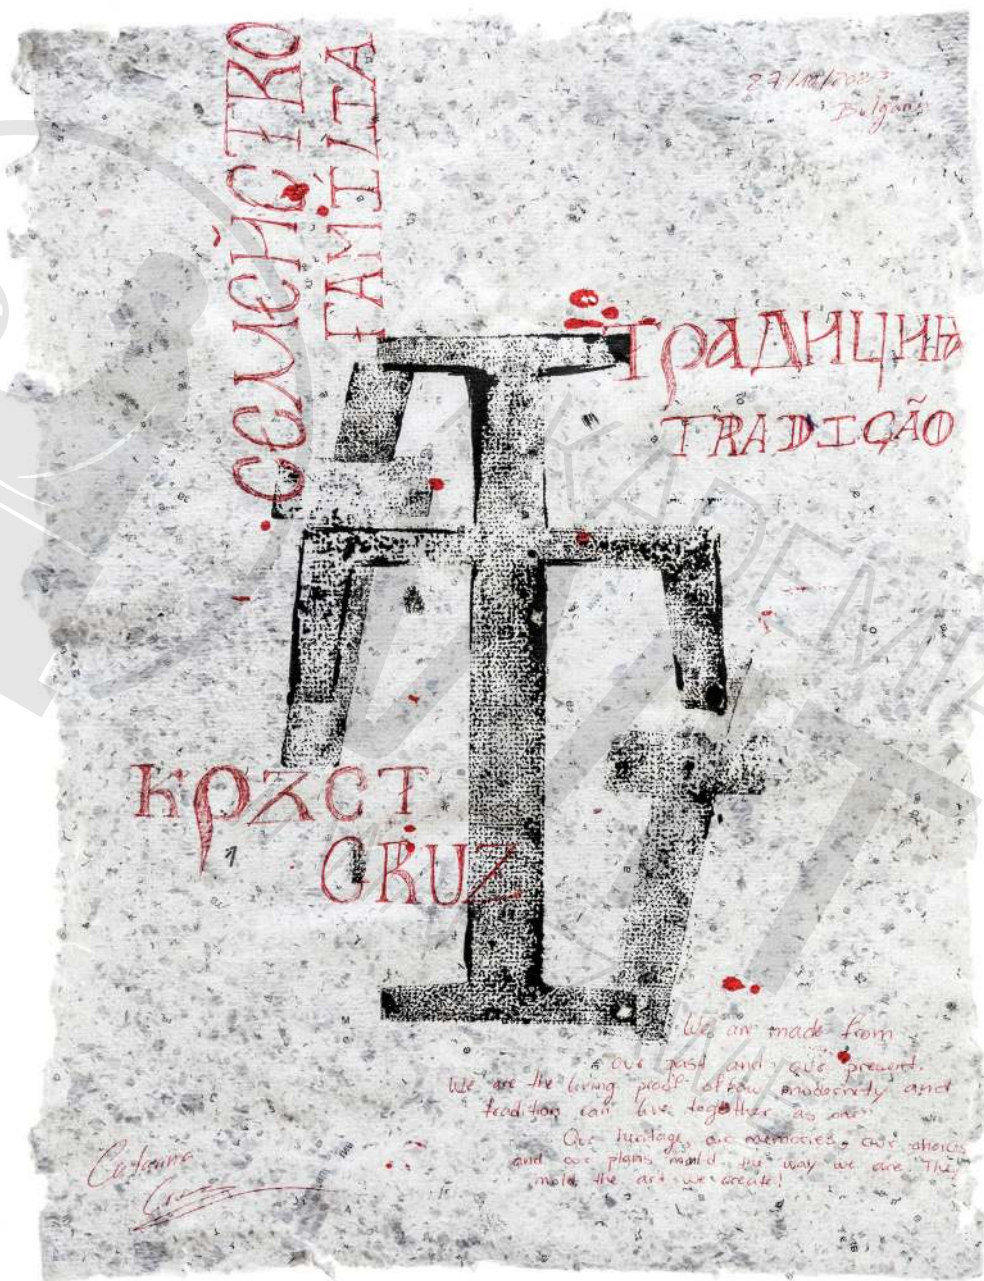 семейство
FAMÍLIA
27/10/2023
Bulgaria
традиция
TRADIÇÃO
крѫст
CRUZ
We are made from
our past and our present.
We are the living proof of how modernity and
tradition can live together as one.
Our heritage, our memories, our choices
and our plans mold the way we are. They
mold the art we create!
Catarina
Cruz
AKADEMIA